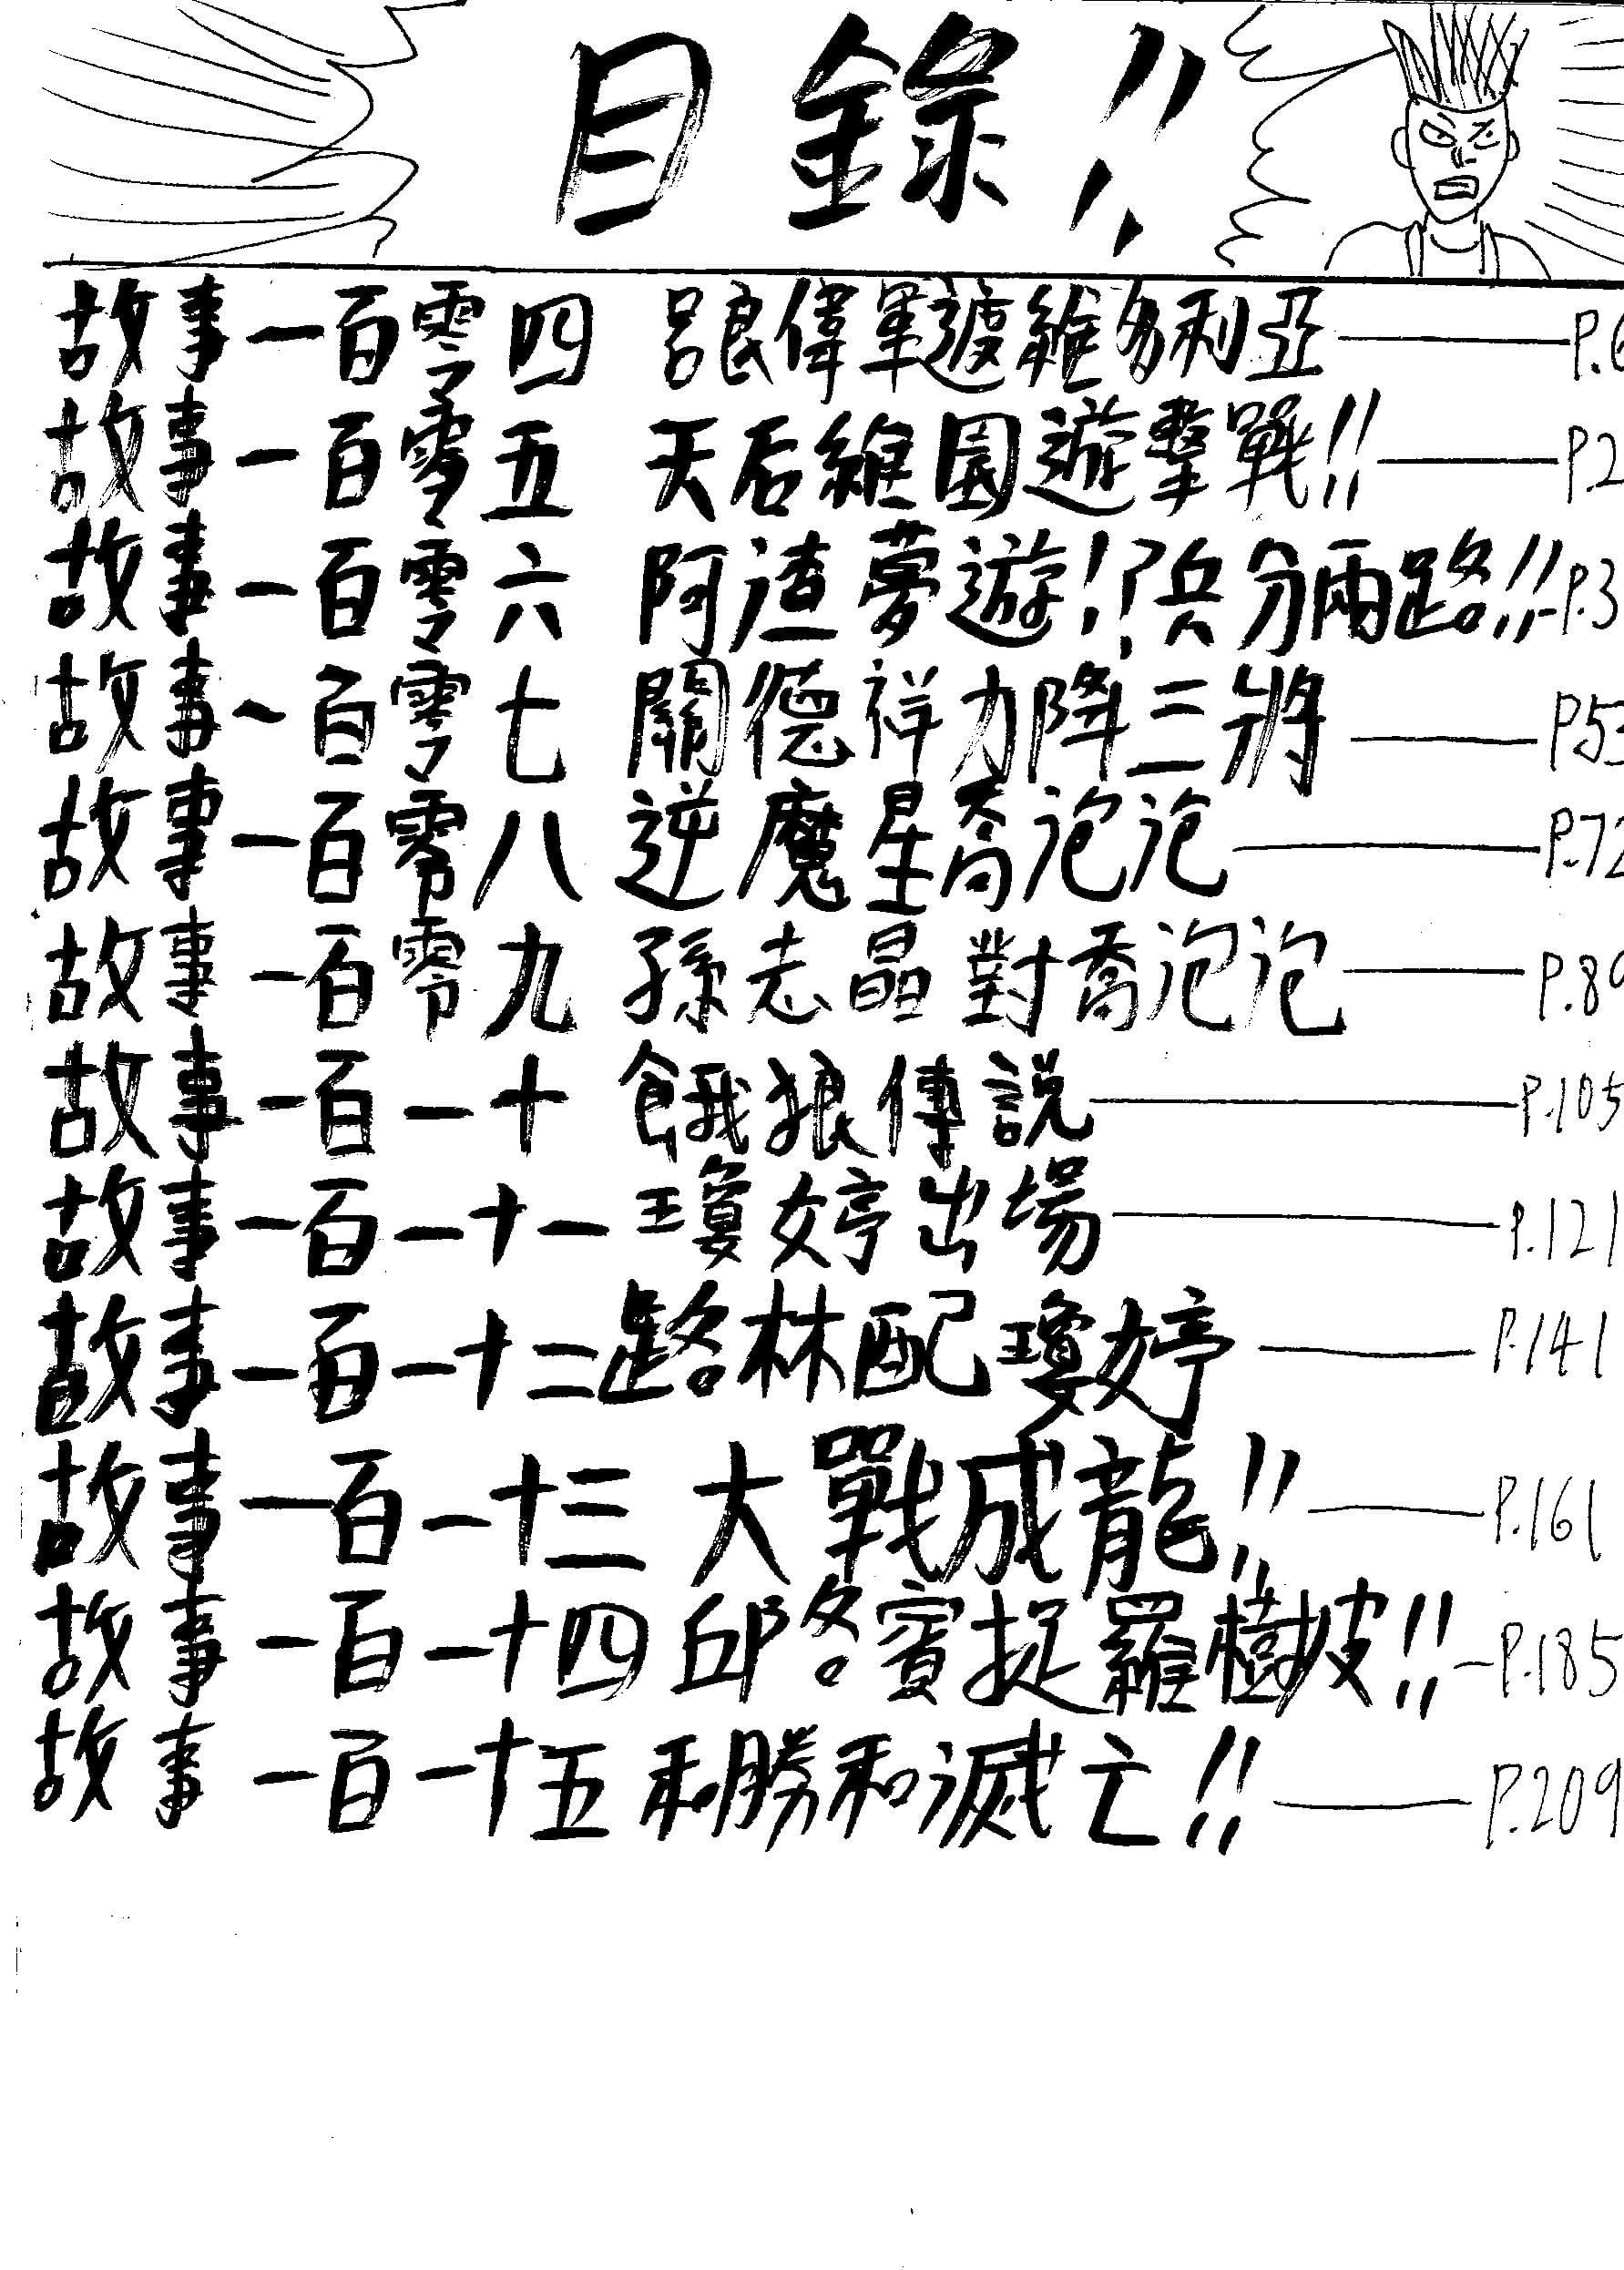 目錄!!
故事一百零四 呂良偉軍遽維多利亞 P.6
故事一百零五 天后維園遊擊戰!! P.2
故事一百零六 阿渣夢遊!?兵分兩路!! P.3
故事一百零七 關德祥力降三將 P53
故事一百零八 逆魔星喬泡泡 P.72
故事一百零九 孫志晶對喬泡泡 P.89
故事一百一十 餓狼傳說 P.105
故事一百一十一 瓊婷出場 P.121
故事一百一十二 路林配瓊婷 P.141
故事一百一十三 大戰成龍!! P.161
故事一百一十四 邱咯賓捉羅樹坡!! P.185
故事一百一十五 和勝和滅亡!! P.209